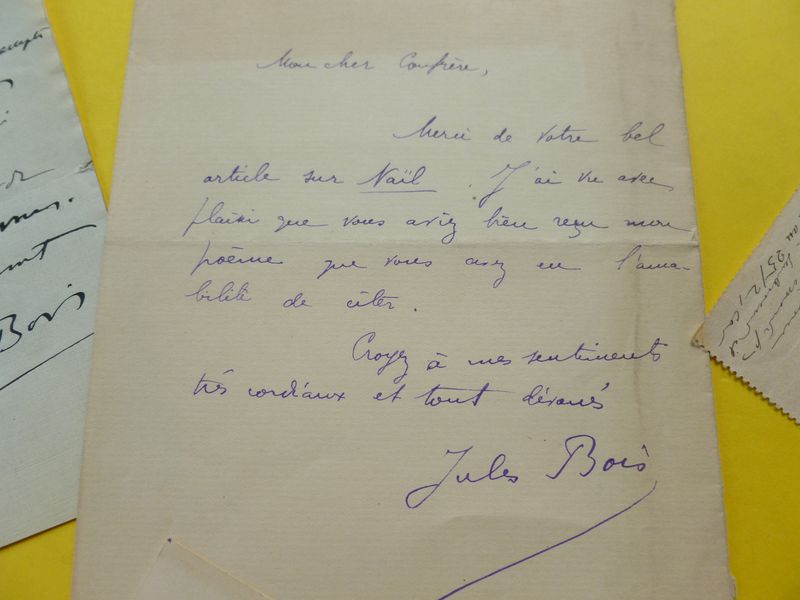 Mon cher Confrère,
Merci de votre bel
article sur Naïl. J'ai vu avec
plaisir que vous aviez bien reçu mon
poème que vous avez eu l'ama-
bilité de citer.
Croyez à mes sentiments
très cordiaux et tout dévoués
Jules Bois
Bois
25/2